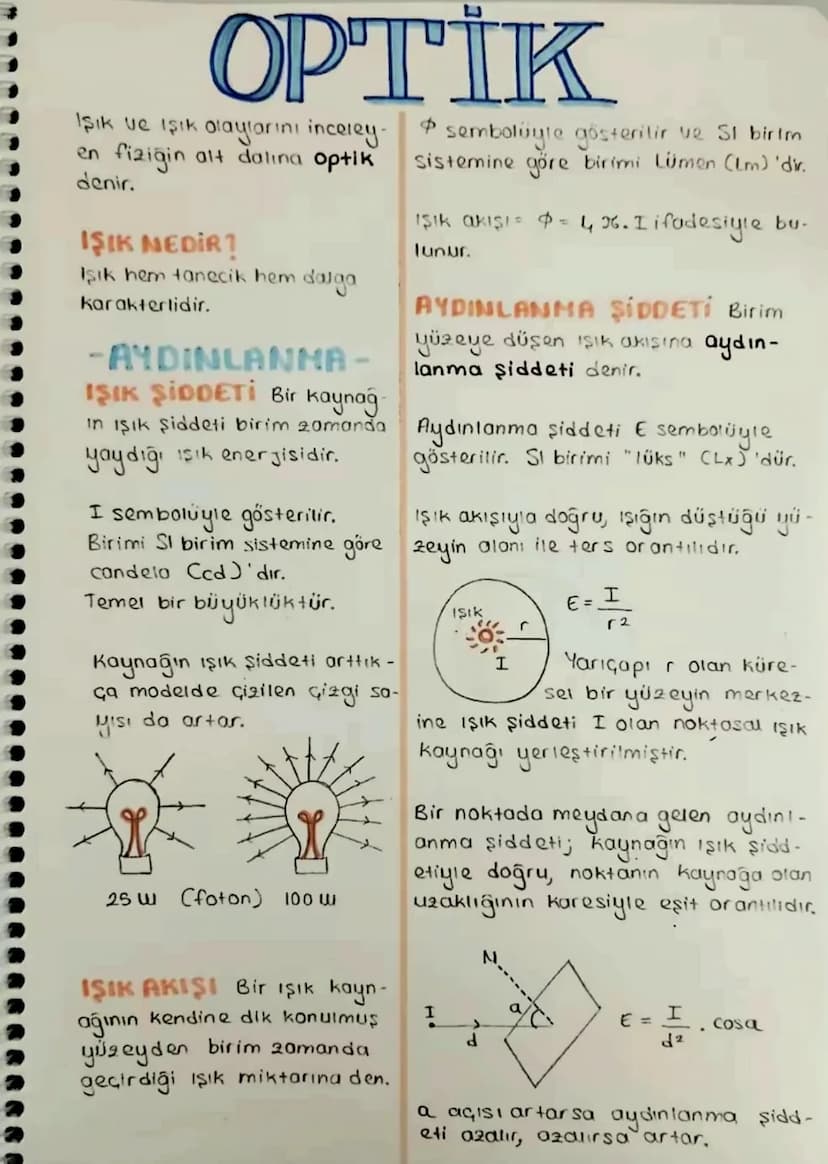 OPTİK
Işık ve ışık olaylarını inceley-
en fiziğin alt dalına optik
denir.
IŞIK NEDİR?
Işık hem tanecik hem dalga
karakterlidir.
-AYDINLANMA-
IŞIK ŞİDDETİ Bir kaynağ-
ın ışık şiddeti birim zamanda
yaydığı ışık enerjisidir.
I sembolüyle gösterilir.
Birimi SI birim sistemine göre
candela (cd)'dır.
Temel bir büyüklüktür.
Kaynağın ışık şiddeti arttık-
ça modelde çizilen çizgi sa-
yısı da artar.
25 W (foton) 100 W
IŞIK AKIŞI Bir ışık kayn-
ağının kendine dik konulmuş
yüzeyden birim zamanda
geçirdiği ışık miktarına den.
Φ sembolüyle gösterilir ve SI birim
sistemine göre birimi Lümen (Lm)'dir.
Işık akışı= Φ = 4π.I ifadesiyle bu-
lunur.
AYDINLANMA ŞİDDETİ Birim
yüzeye düşen ışık akısına aydın-
lanma şiddeti denir.
Aydınlanma şiddeti E sembolüyle
gösterilir. SI birimi "lüks" (Lx)'dür.
Işık akışıyla doğru, ışığın düştüğü yü-
zeyin alanı ile ters orantılıdır.
IŞIK
r
I
E = I / r²
Yarıçapı r olan küre-
sel bir yüzeyin merkez-
ine ışık şiddeti I olan noktasal ışık
kaynağı yerleştirilmiştir.
Bir noktada meydana gelen aydınl-
anma şiddeti; kaynağın ışık şidd-
etiyle doğru, noktanın kaynağa olan
uzaklığının karesiyle eşit orantılıdır.
N
I
d
a
E = I / d² . cosa
a açısı artarsa aydınlanma şidd-
eti azalır, azalırsa artar.